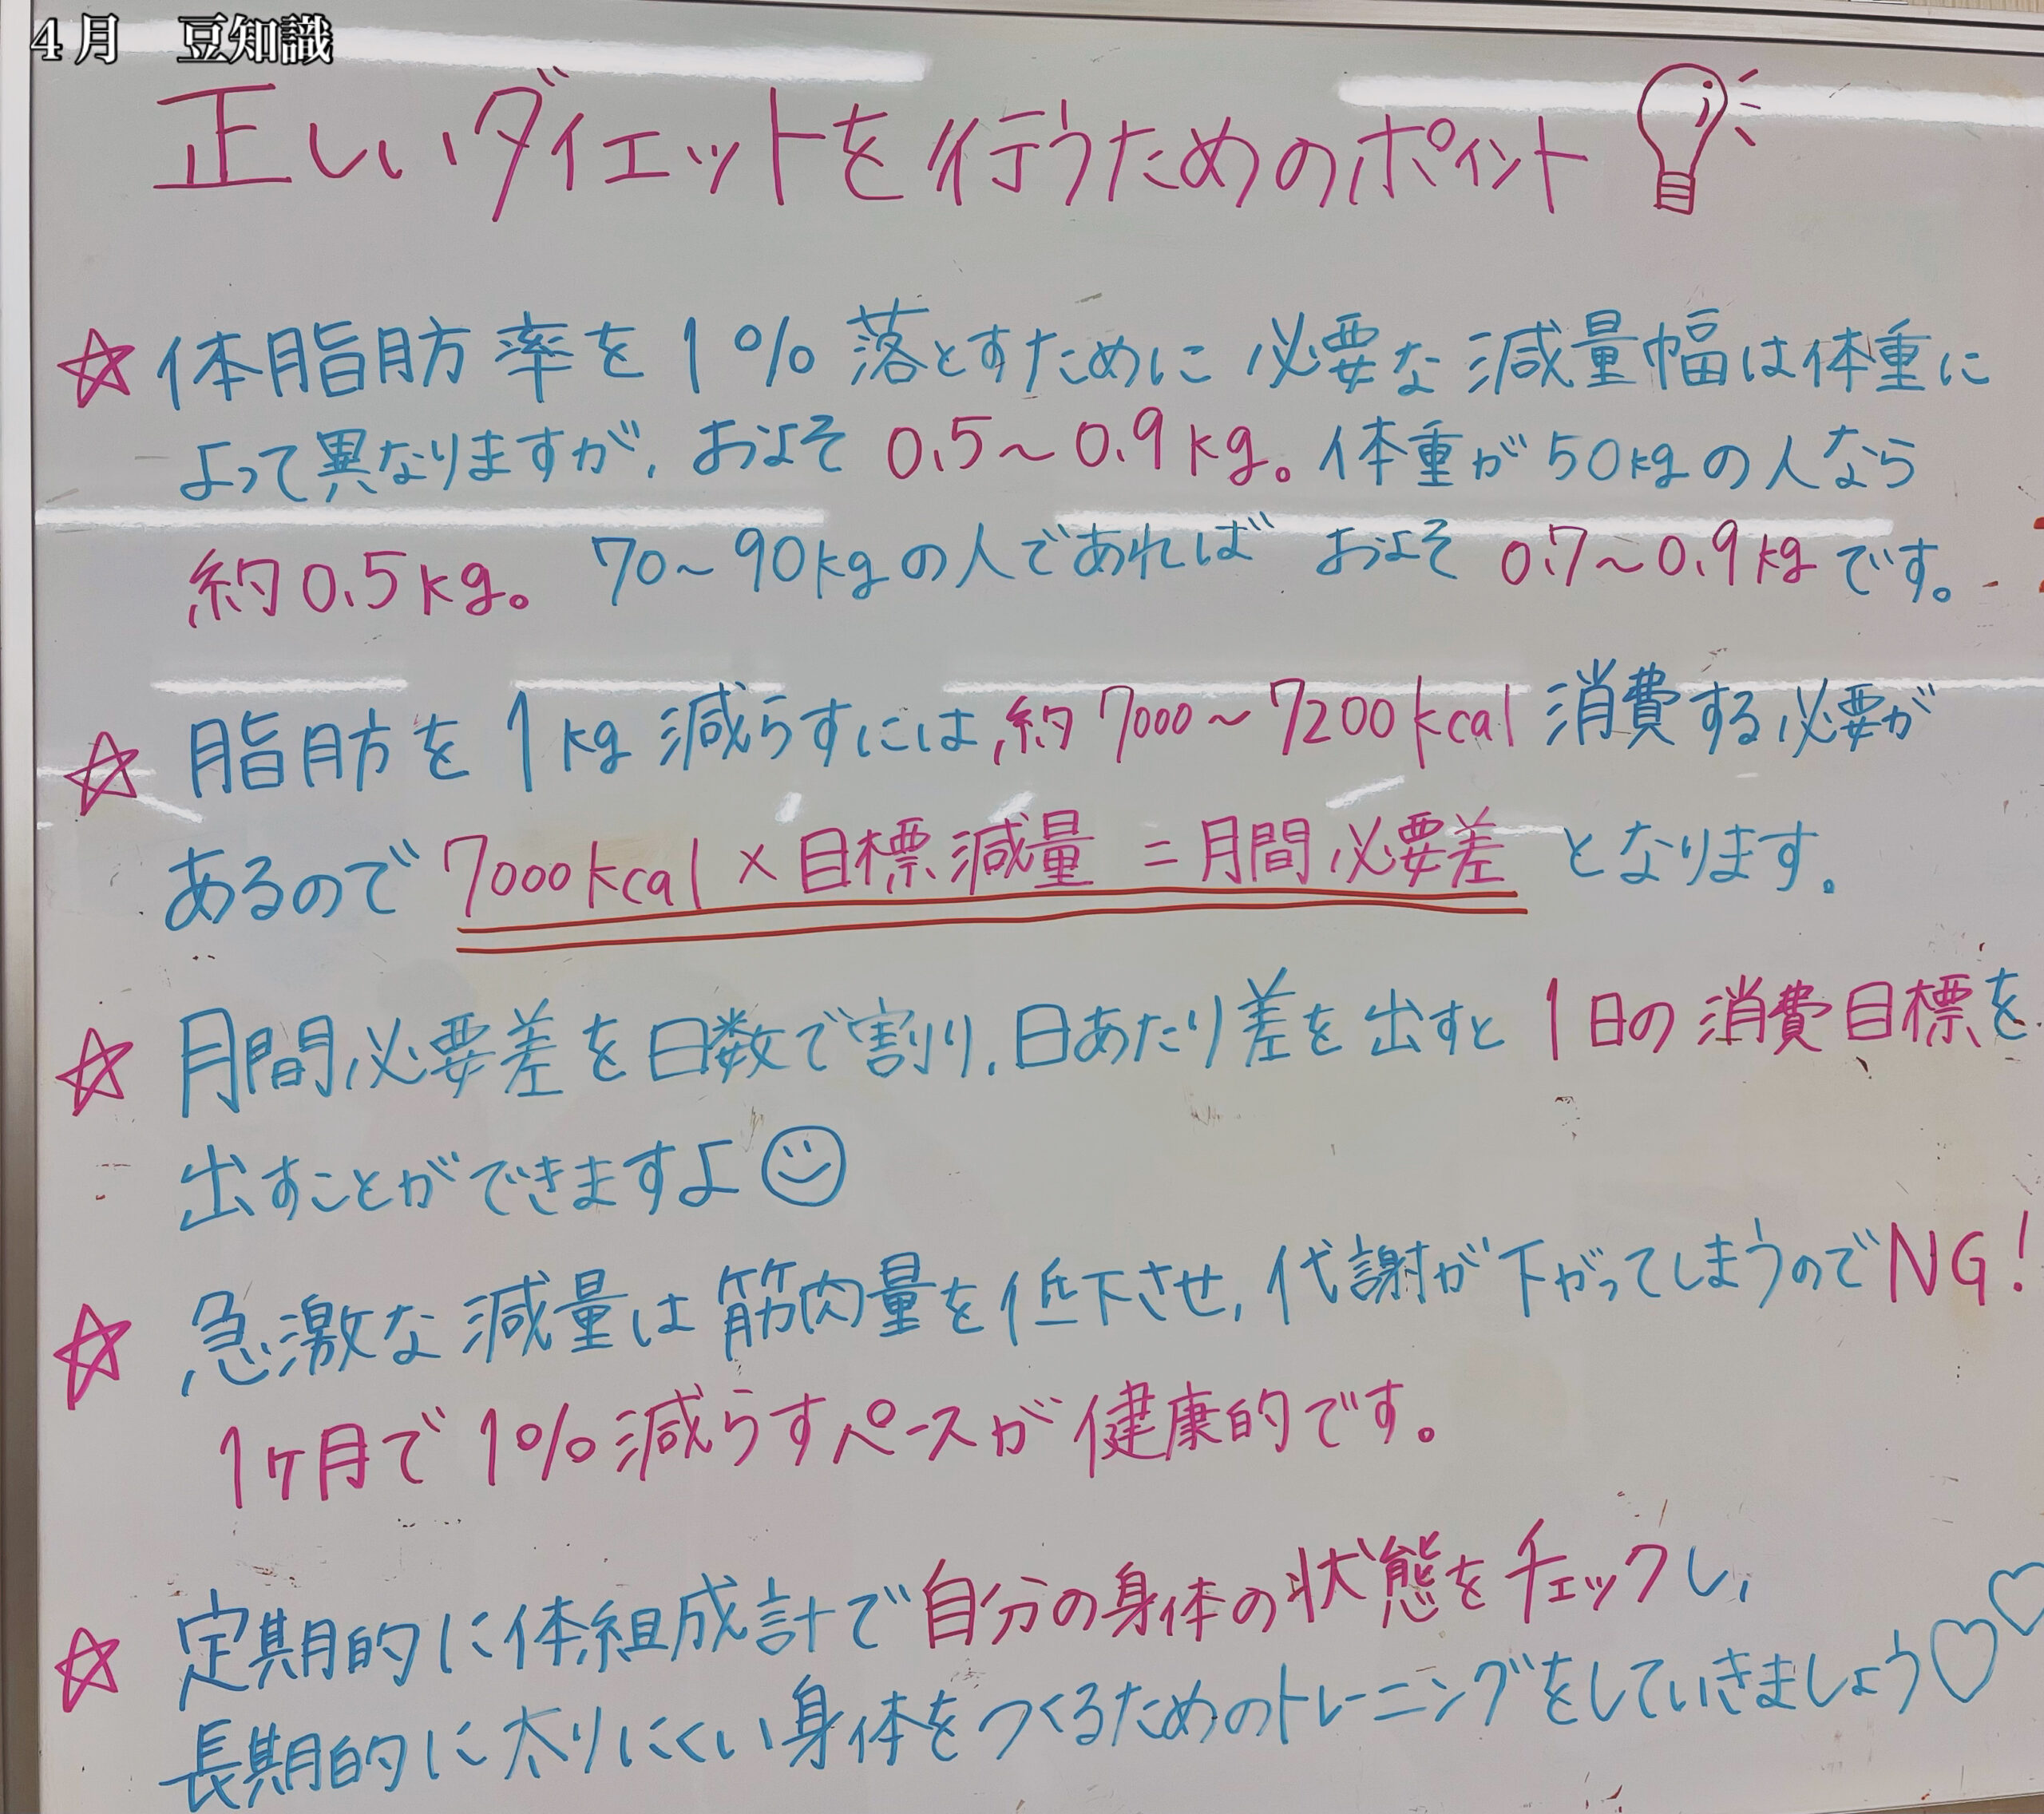 4月　豆知識
正しいダイエットを行うためのポイント
☆体脂肪率を1%落とすために必要な減量幅は体重に
よって異なりますが、およそ0.5〜0.9kg。体重が50kgの人なら
約0.5kg。70〜90kgの人であればおよそ0.7〜0.9kgです。
☆脂肪を1kg減らすには、約7000〜7200kcal消費する必要が
あるので7000kcal×目標減量=月間必要差となります。
☆月間必要差を日数で割り、日あたり差を出すと1日の消費目標を
出すことができますよ
☆急激な減量は筋肉量を低下させ、代謝が下がってしまうのでNG!
1ヶ月で1%減らすペースが健康的です。
☆定期的に体組成計で自分の身体の状態をチェックし、
長期的に太りにくい身体をつくるためのトレーニングをしていきましょう♡♡